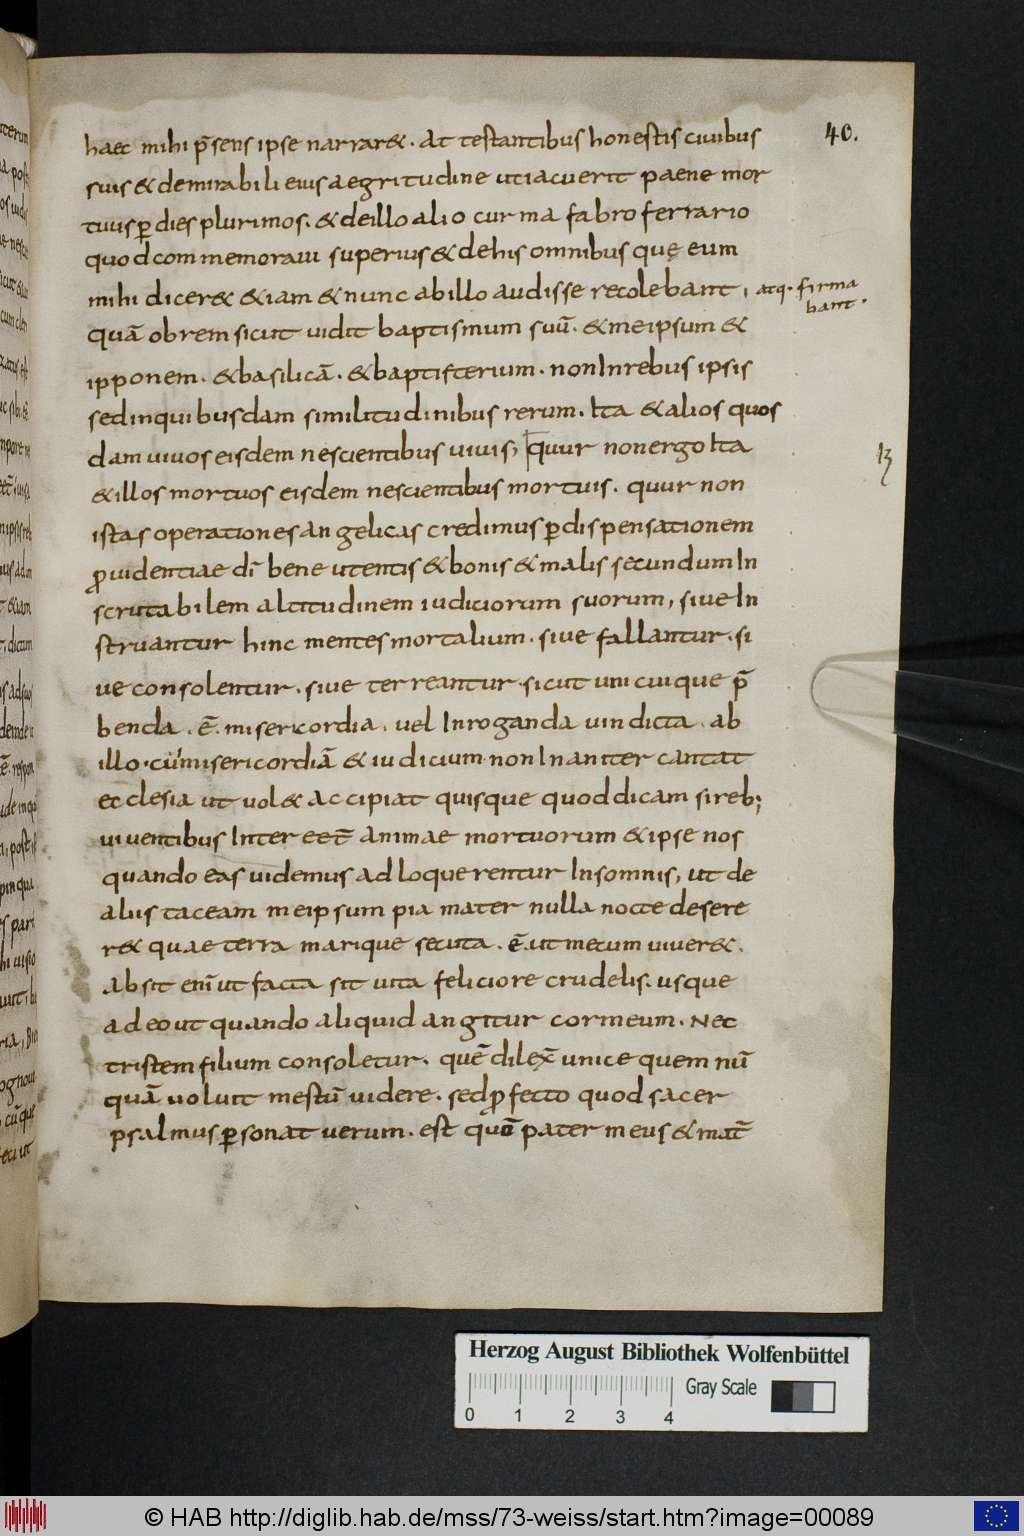 40.
haec mihi p̄sens ipse narrar&. At testantibus honestis ciuibus
suis & demirabili eius aegritudine ut iacuerit paene mor
tuus ꝑ dies plurimos. & deillo alio curma fabro ferrario
quod commemoraui superius & dehis omnibus quę eum
mihi dicer& &iam & nunc abillo audisse recolebant, atq· firma
bant.
quā obrem sicut uidit baptismum suū. & meipsum &
ipponem. & basilicā. & baptisterium. non Inrebus ipsis
sed inquibusdam similitudinibus rerum. Ita & alios quos
dam uiuos eisdem nescientibus uiuis; quur non ergo Ita
& illos mortuos eisdem nescientibus mortuis. quur non
istas operationes angelicas credimus ꝑ dispensationem
ꝓuidentiae dī bene utentis & bonis & malis secundum In
scrutabilem altitudinem iudiciorum suorum, siue In
struantur hinc mentes mortalium. siue fallantur. si
ue consolentur. siue terreantur. sicut unicuique p̄
benda. ē. misericordia. uel Inroganda uindicta. ab
illo. cui misericordiā & iudicium non Inaniter cantat
ecclesia ut uol& accipiat quisque quod dicam si reb;
uiuentibus Inter eēt animae mortuorum & ipse nos
quando eas uidemus adloquerentur Insomnis, ut de
aliis taceam meipsum pia mater nulla nocte desere
r& quae terra marique secuta. ē. ut mecum uiuer&.
Absit enī ut facta sit uita feliciore crudelis. usque
adeo ut quando aliquid angitur cor meum. Nec
tristem filium consoletur. quē dilex̄ unice quem nū
quā uoluit mestū uidere. sed ꝓfecto quod sacer
psalmus ꝑsonat uerum. est quō pater meus & mat̄
Herzog August Bibliothek Wolfenbüttel
Gray Scale
0 1 2 3 4
© HAB http://diglib.hab.de/mss/73-weiss/start.htm?image=00089